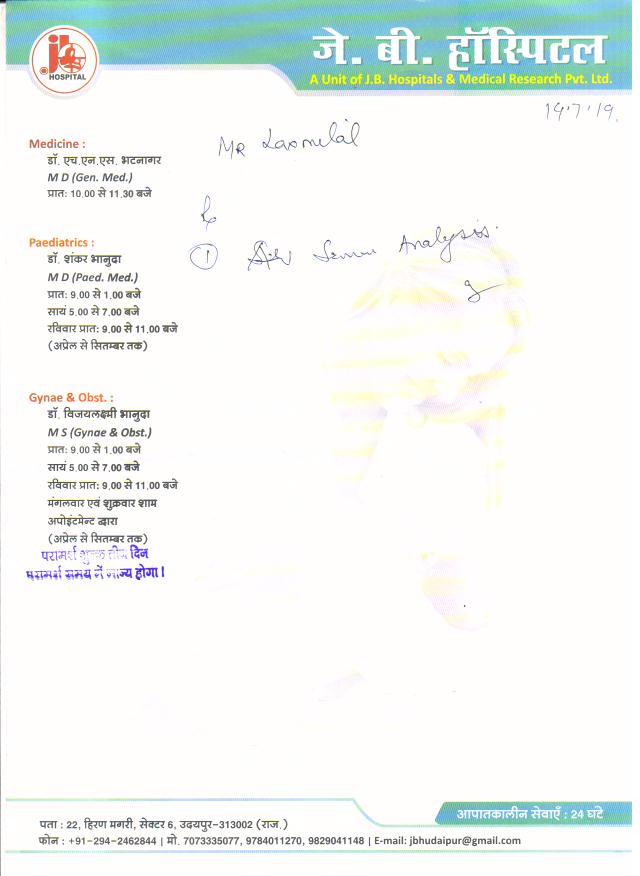 jb
HOSPITAL
जे. बी. हॉस्पिटल
A Unit of J.B. Hospitals & Medical Research Pvt. Ltd.
19.7.19.
MR Laxmilal
Rx
① Semen Analysis.
Medicine :
डॉ. एच.एन.एस. भटनागर
M D (Gen. Med.)
प्रात: 10.00 से 11.30 बजे
Paediatrics :
डॉ. शंकर भानुदा
M D (Paed. Med.)
प्रात: 9.00 से 1.00 बजे
सायं 5.00 से 7.00 बजे
रविवार प्रात: 9.00 से 11.00 बजे
(अप्रेल से सितम्बर तक)
Gynae & Obst. :
डॉ. विजयलक्ष्मी भानुदा
M S (Gynae & Obst.)
प्रात: 9.00 से 1.00 बजे
सायं 5.00 से 7.00 बजे
रविवार प्रात: 9.00 से 11.00 बजे
मंगलवार एवं शुक्रवार शाम
अपोइंटमेन्ट द्वारा
(अप्रेल से सितम्बर तक)
परामर्श शुल्क तीन दिन
परामर्श समय में मान्य होगा।
आपातकालीन सेवाएँ : 24 घंटे
पता : 22, हिरण मगरी, सेक्टर 6, उदयपुर-313002 (राज.)
फोन : +91-294-2462844 | मो. 7073335077, 9784011270, 9829041148 | E-mail: jbhudaipur@gmail.com